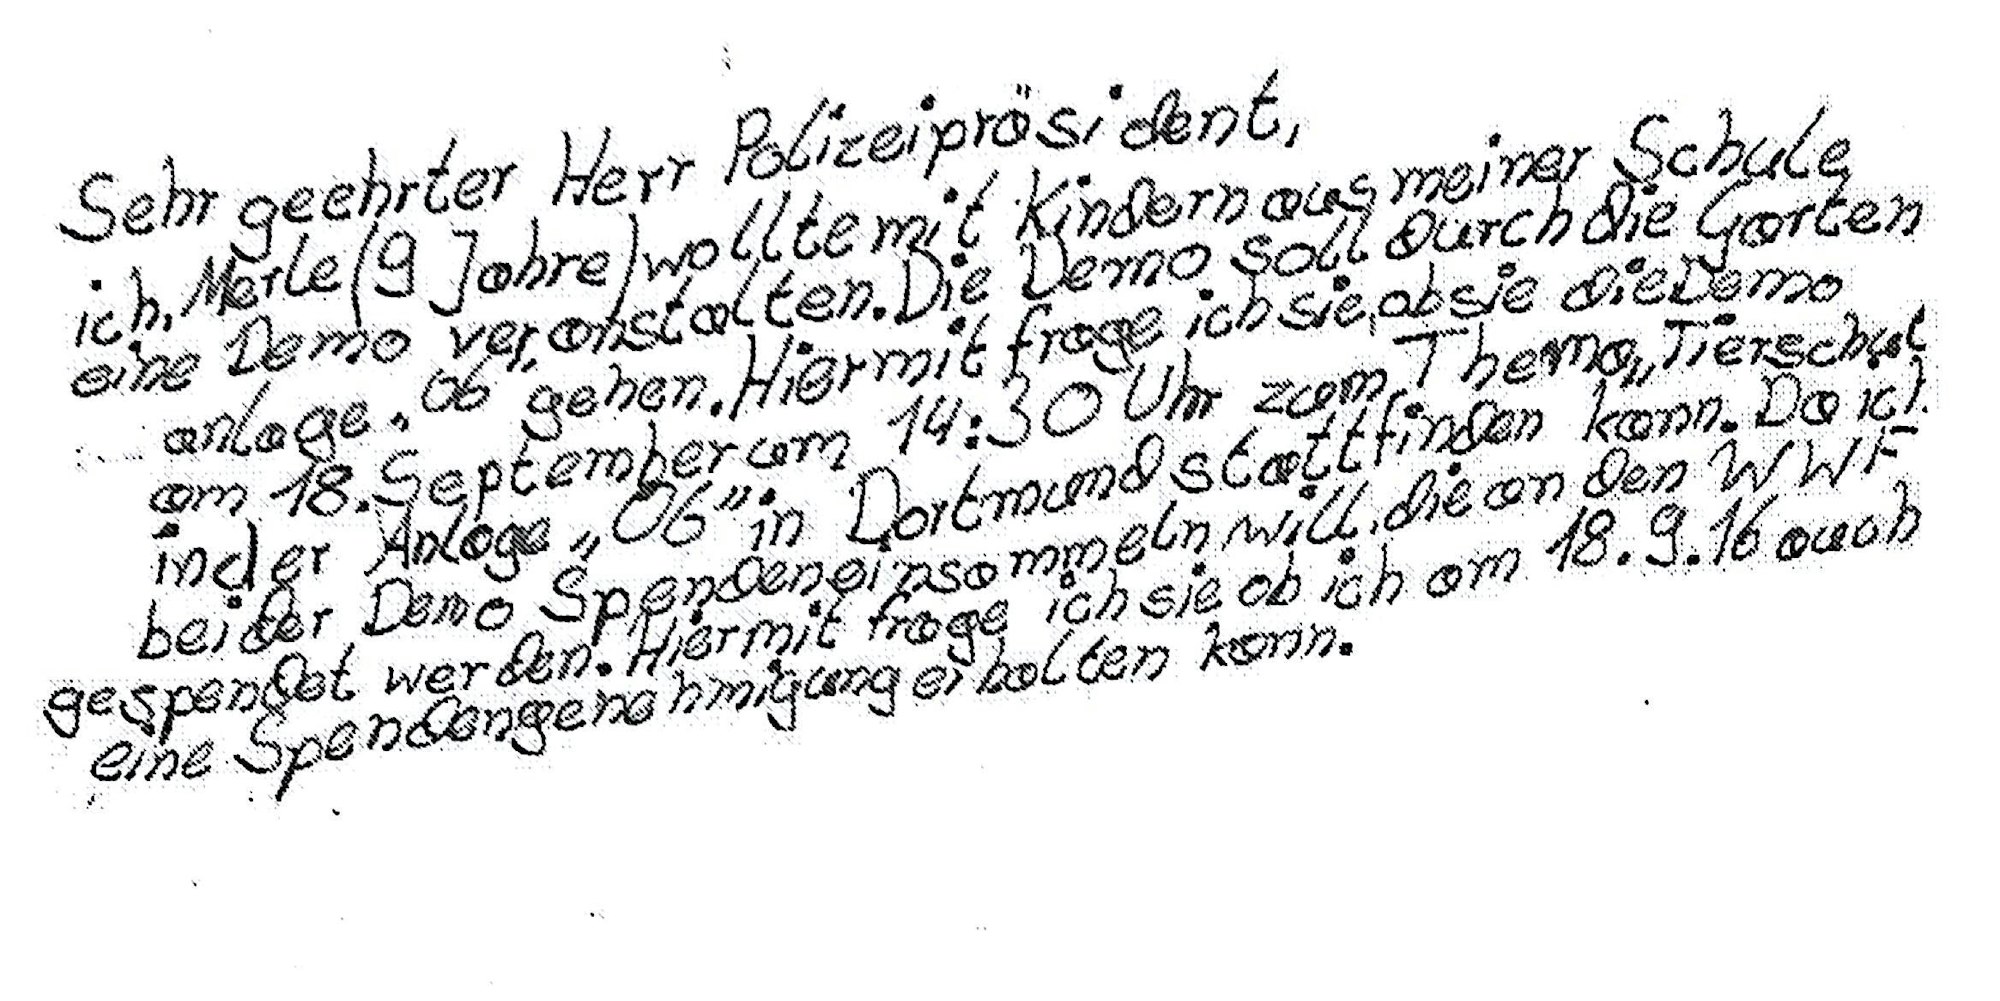 Sehr geehrter Herr Polizeipräsident,
ich, Merle (9 Jahre) wollte mit Kindern aus meiner Schule
eine Demo veranstalten. Die Demo soll durch die Garten
anlage „06“ gehen. Hiermit frage ich sie, ob sie die Demo
am 18. September um 14:30 Uhr zum Thema „Tierschut
in der Anlage „06“ in Dortmund stattfinden kann. Da ich
bei der Demo Spenden einsammeln will, die an den WWF
gespendet werden. Hiermit frage ich sie ob ich am 18.9.16 auch
eine Spendengenehmigung erhalten kann.